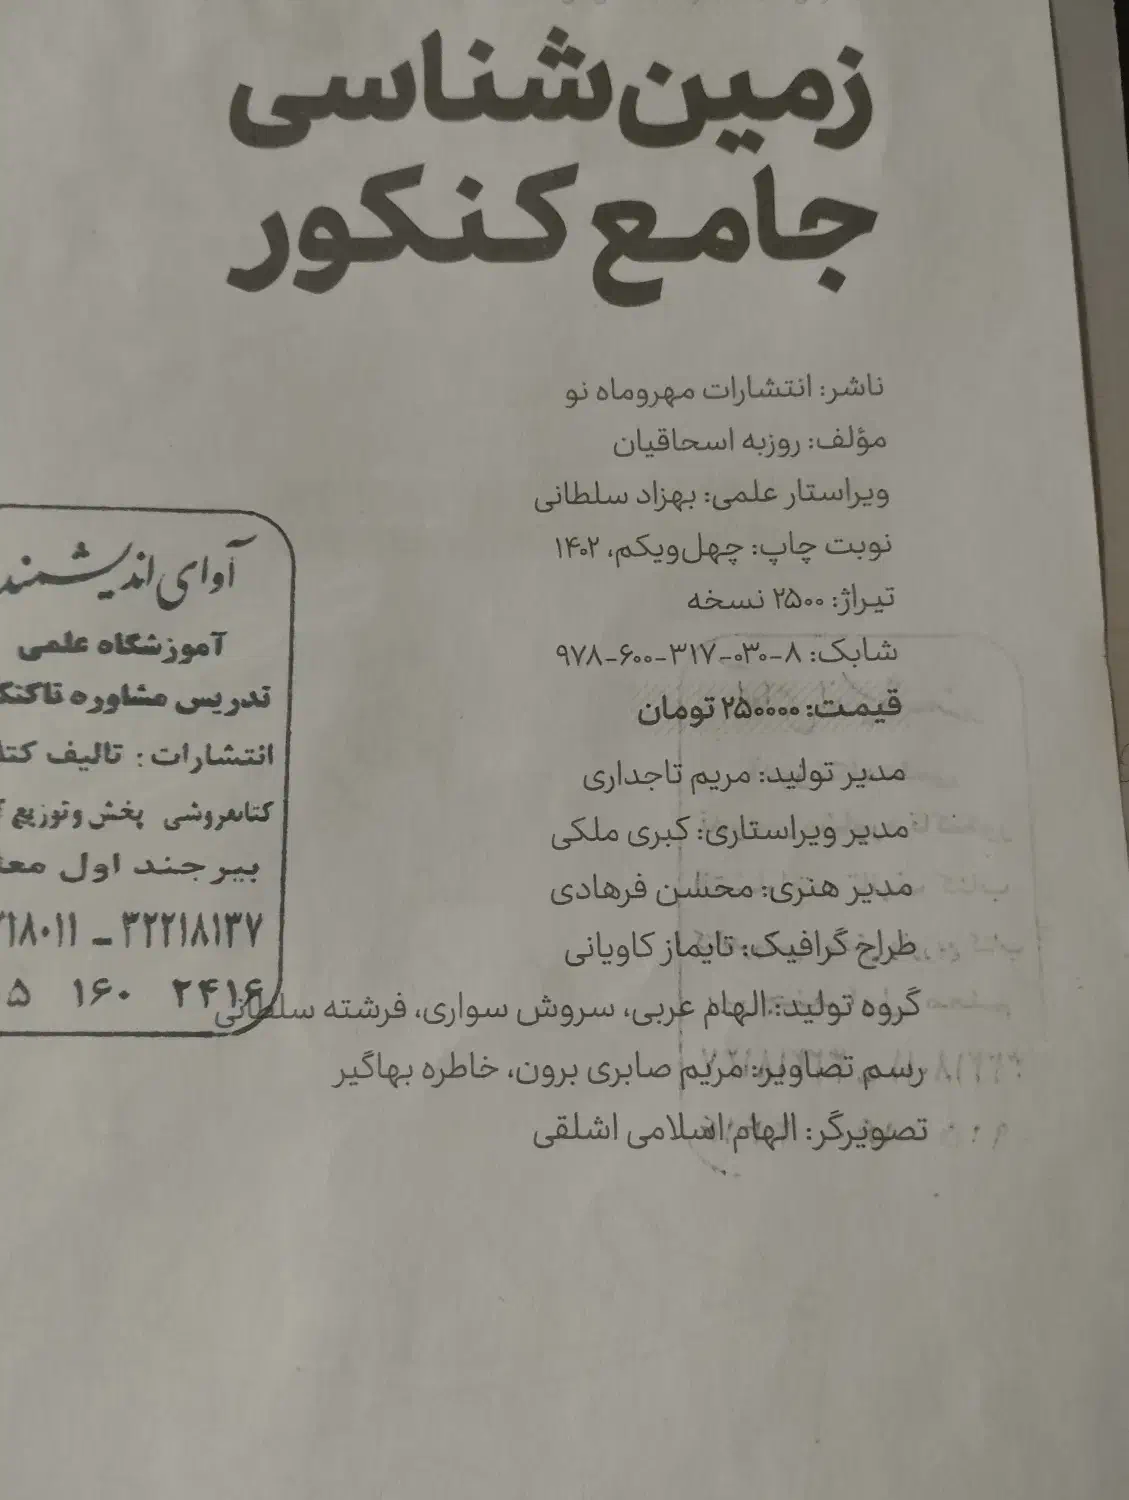 زمین‌شناسی
جامع کنکور
ناشر: انتشارات مهروماه نو
مؤلف: روزبه اسحاقیان
ویراستار علمی: بهزاد سلطانی
نوبت چاپ: چهل‌ویکم، ۱۴۰۲
تیراژ: ۲۵۰۰ نسخه
شابک: ۸-۰۳۰-۳۱۷-۶۰۰-۹۷۸
قیمت: ۲۵۰۰۰۰ تومان
مدیر تولید: مریم تاجداری
مدیر ویراستاری: کبری ملکی
مدیر هنری: محسن فرهادی
طراح گرافیک: تایماز کاویانی
گروه تولید: الهام عربی، سروش سواری، فرشته سلطانی
رسم تصاویر: مریم صابری برون، خاطره بهاگیر
تصویرگر: الهام اسلامی اشلقی
آوای اندیشمند
آموزشگاه علمی
تدریس مشاوره تا
انتشارات: تالیف
کتابفروشی پخش وتوزیع
بیرجند اول
۳۲۲۱۸۱۳۷ -
۲۴۱۶ ۱۶۰